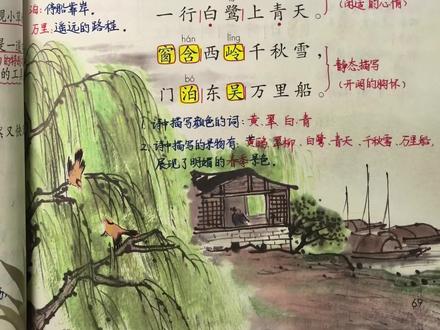 泊:停船靠岸。
一行白鹭上青天。
万里:遥远的路程。
hán lǐng
窗含西岭千秋雪,
静态描写
(开阔的胸怀)
bó
门泊东吴万里船。
1.诗中描写颜色的词:黄、翠、白、青
2.诗中描写的景物有:黄鹂、翠柳、白鹭、青天、千秋雪、万里船,
展现了明媚的春季景色。
69